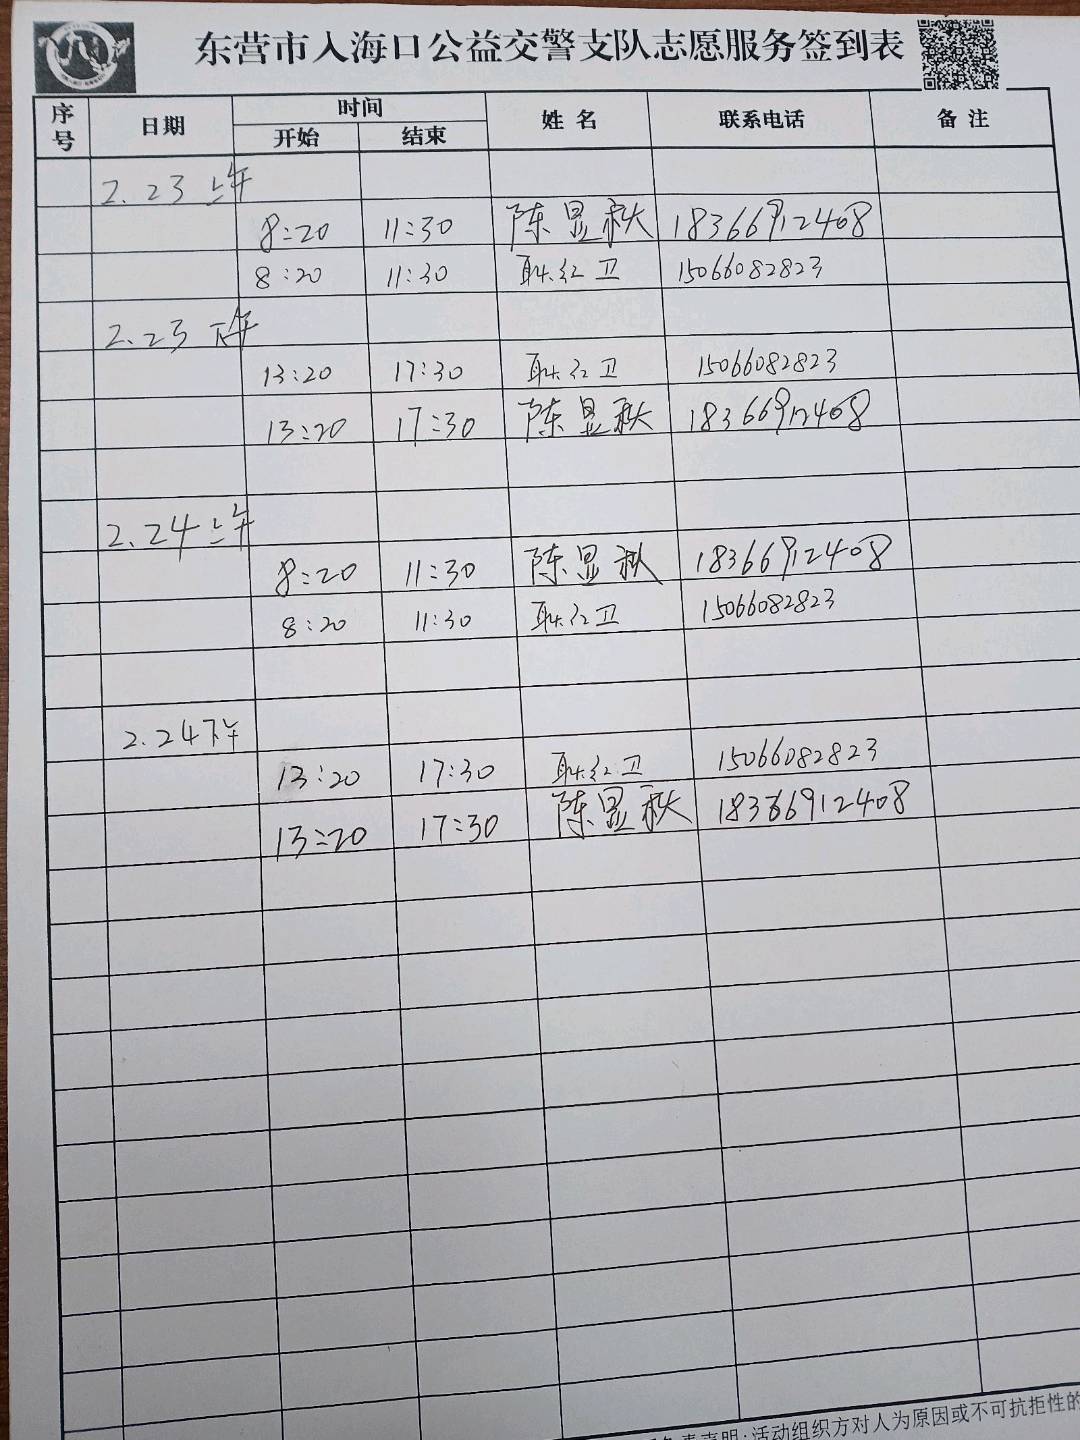 东营市入海口公益交警支队志愿服务签到表
序号 日期 时间 姓名 联系电话 备注
开始 结束
2.23 上午
8:20 11:30 陈显秋 18366912408
8:20 11:30 耿红卫 15066082823
2.23 下午
13:20 17:30 耿红卫 15066082823
13:20 17:30 陈显秋 18366912408
2.24 上午
8:20 11:30 陈显秋 18366912408
8:20 11:30 耿红卫 15066082823
2.24 下午
13:20 17:30 耿红卫 15066082823
13:20 17:30 陈显秋 18366912408
声明:活动组织方对人为原因或不可抗拒性的